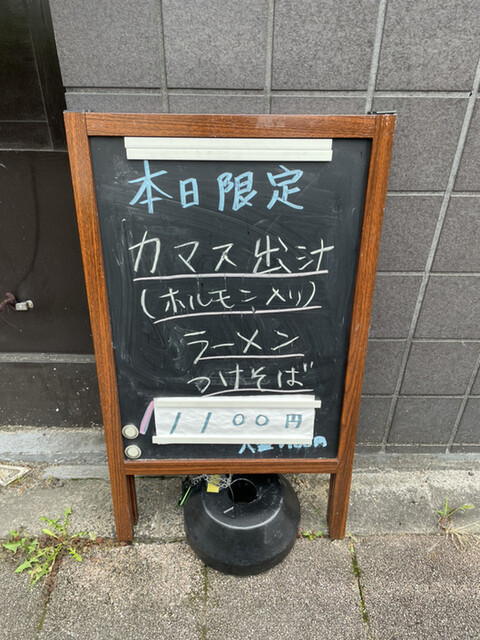 本日限定
カマス出汁
(ホルモン入り)
ラーメン
つけそば
1100円